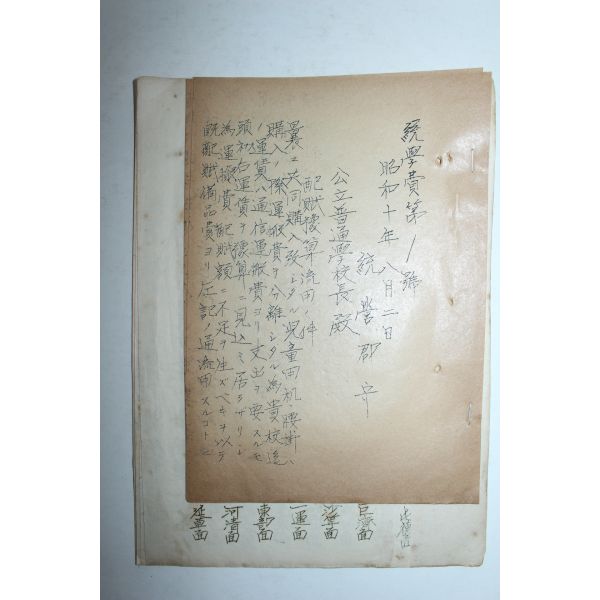 統學費第1號
昭和十年八月二日
統營郡守
公立普通學校長殿
配賦豫算流用ノ件
曩ニ共同購入致シタル児童用机、腰掛ハ
購入ノ際運搬費ヲ分離シタル為貴校後
ノ運賃ハ通信運搬費ヨリ支出ヲ要スルモ
頭初右運賃ヲ豫算ニ見込ミ居ラザリシ
為運搬費配賦額ニ不足ヲ生ズベキヲ以テ
既配賦備品費ヨリ左記ノ通流用スルコトニ
巨濟面
沙等面
一運面
東部面
河淸面
延草面